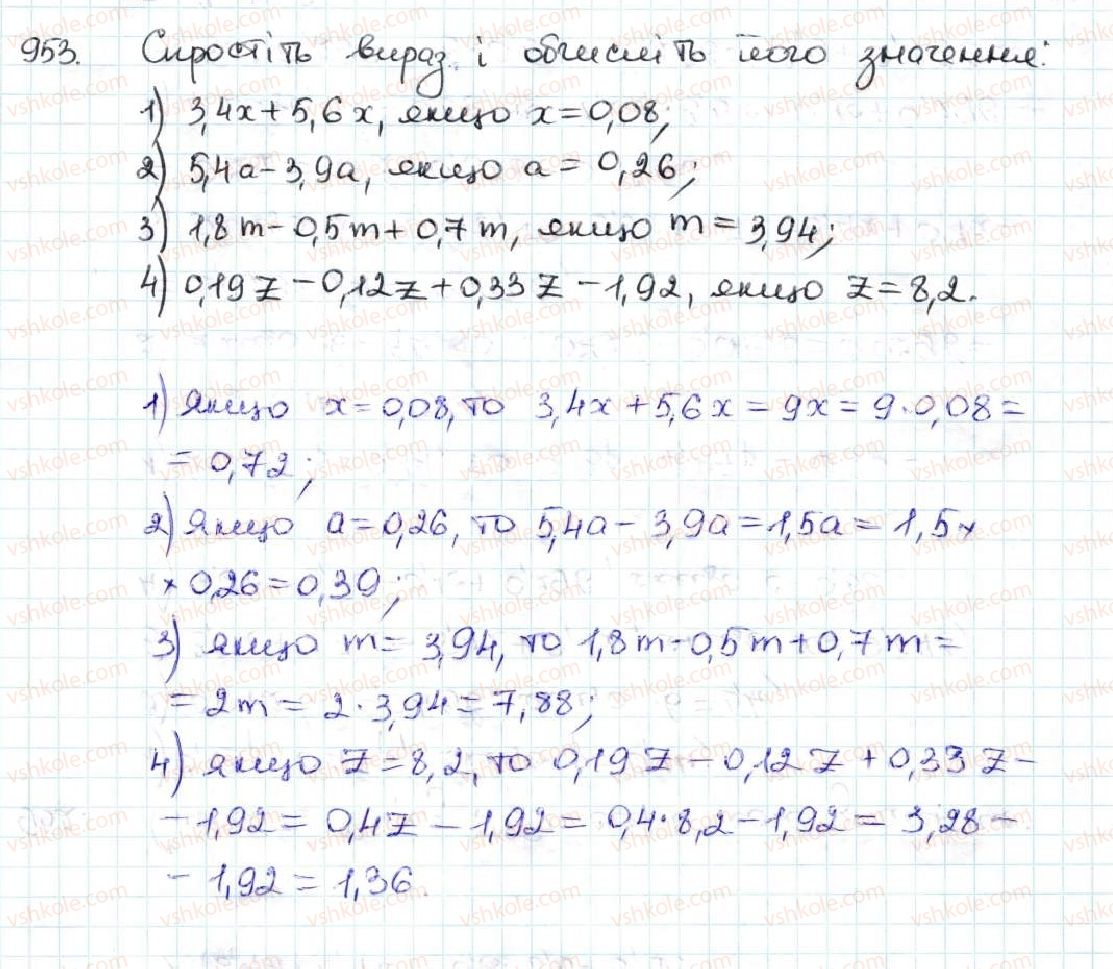 953. Спростіть вираз і обчисліть його значення:
1) 3,4x + 5,6x, якщо x = 0,08;
2) 5,4a - 3,9a, якщо a = 0,26;
3) 1,8m - 0,5m + 0,7m, якщо m = 3,94;
4) 0,19z - 0,12z + 0,33z - 1,92, якщо z = 8,2.
1) Якщо x = 0,08, то 3,4x + 5,6x = 9x = 9·0,08 =
= 0,72;
2) Якщо a = 0,26, то 5,4a - 3,9a = 1,5a = 1,5 ×
× 0,26 = 0,39;
3) якщо m = 3,94, то 1,8m - 0,5m + 0,7m =
= 2m = 2·3,94 = 7,88;
4) якщо z = 8,2, то 0,19z - 0,12z + 0,33z -
- 1,92 = 0,4z - 1,92 = 0,4·8,2 - 1,92 = 3,28 -
- 1,92 = 1,36.